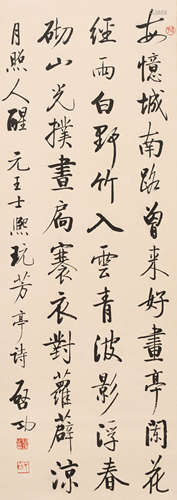 每憶城南路曾来好畫亭闌花
經雨白野竹入雲青波影浮春
砌山光撲晝扃褰衣對蘿薜涼
月照人醒 元王士熙玩芳亭诗 启功